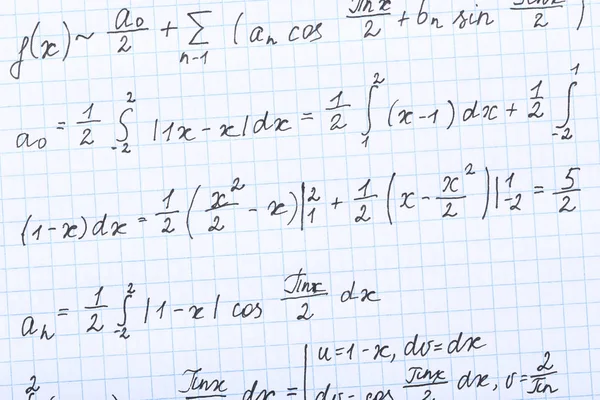 f(x) ~ a₀/2 + ∑ n-1 ( aₙ cos πnx/2 + bₙ sin πnx/2 )
a₀ = 1/2 ∫₋₂² |1x - x| dx = 1/2 ∫₁² (x-1) dx + 1/2 ∫₋₂¹
(1-x) dx = 1/2 ( x²/2 - x ) |₁² + 1/2 ( x - x²/2 ) |₋₂¹ = 5/2
aₙ = 1/2 ∫₋₂² |1-x| cos πnx/2 dx
u = 1-x, dv = dx
πnx dx = dv = cos πnx/2 dx, v = 2/πn